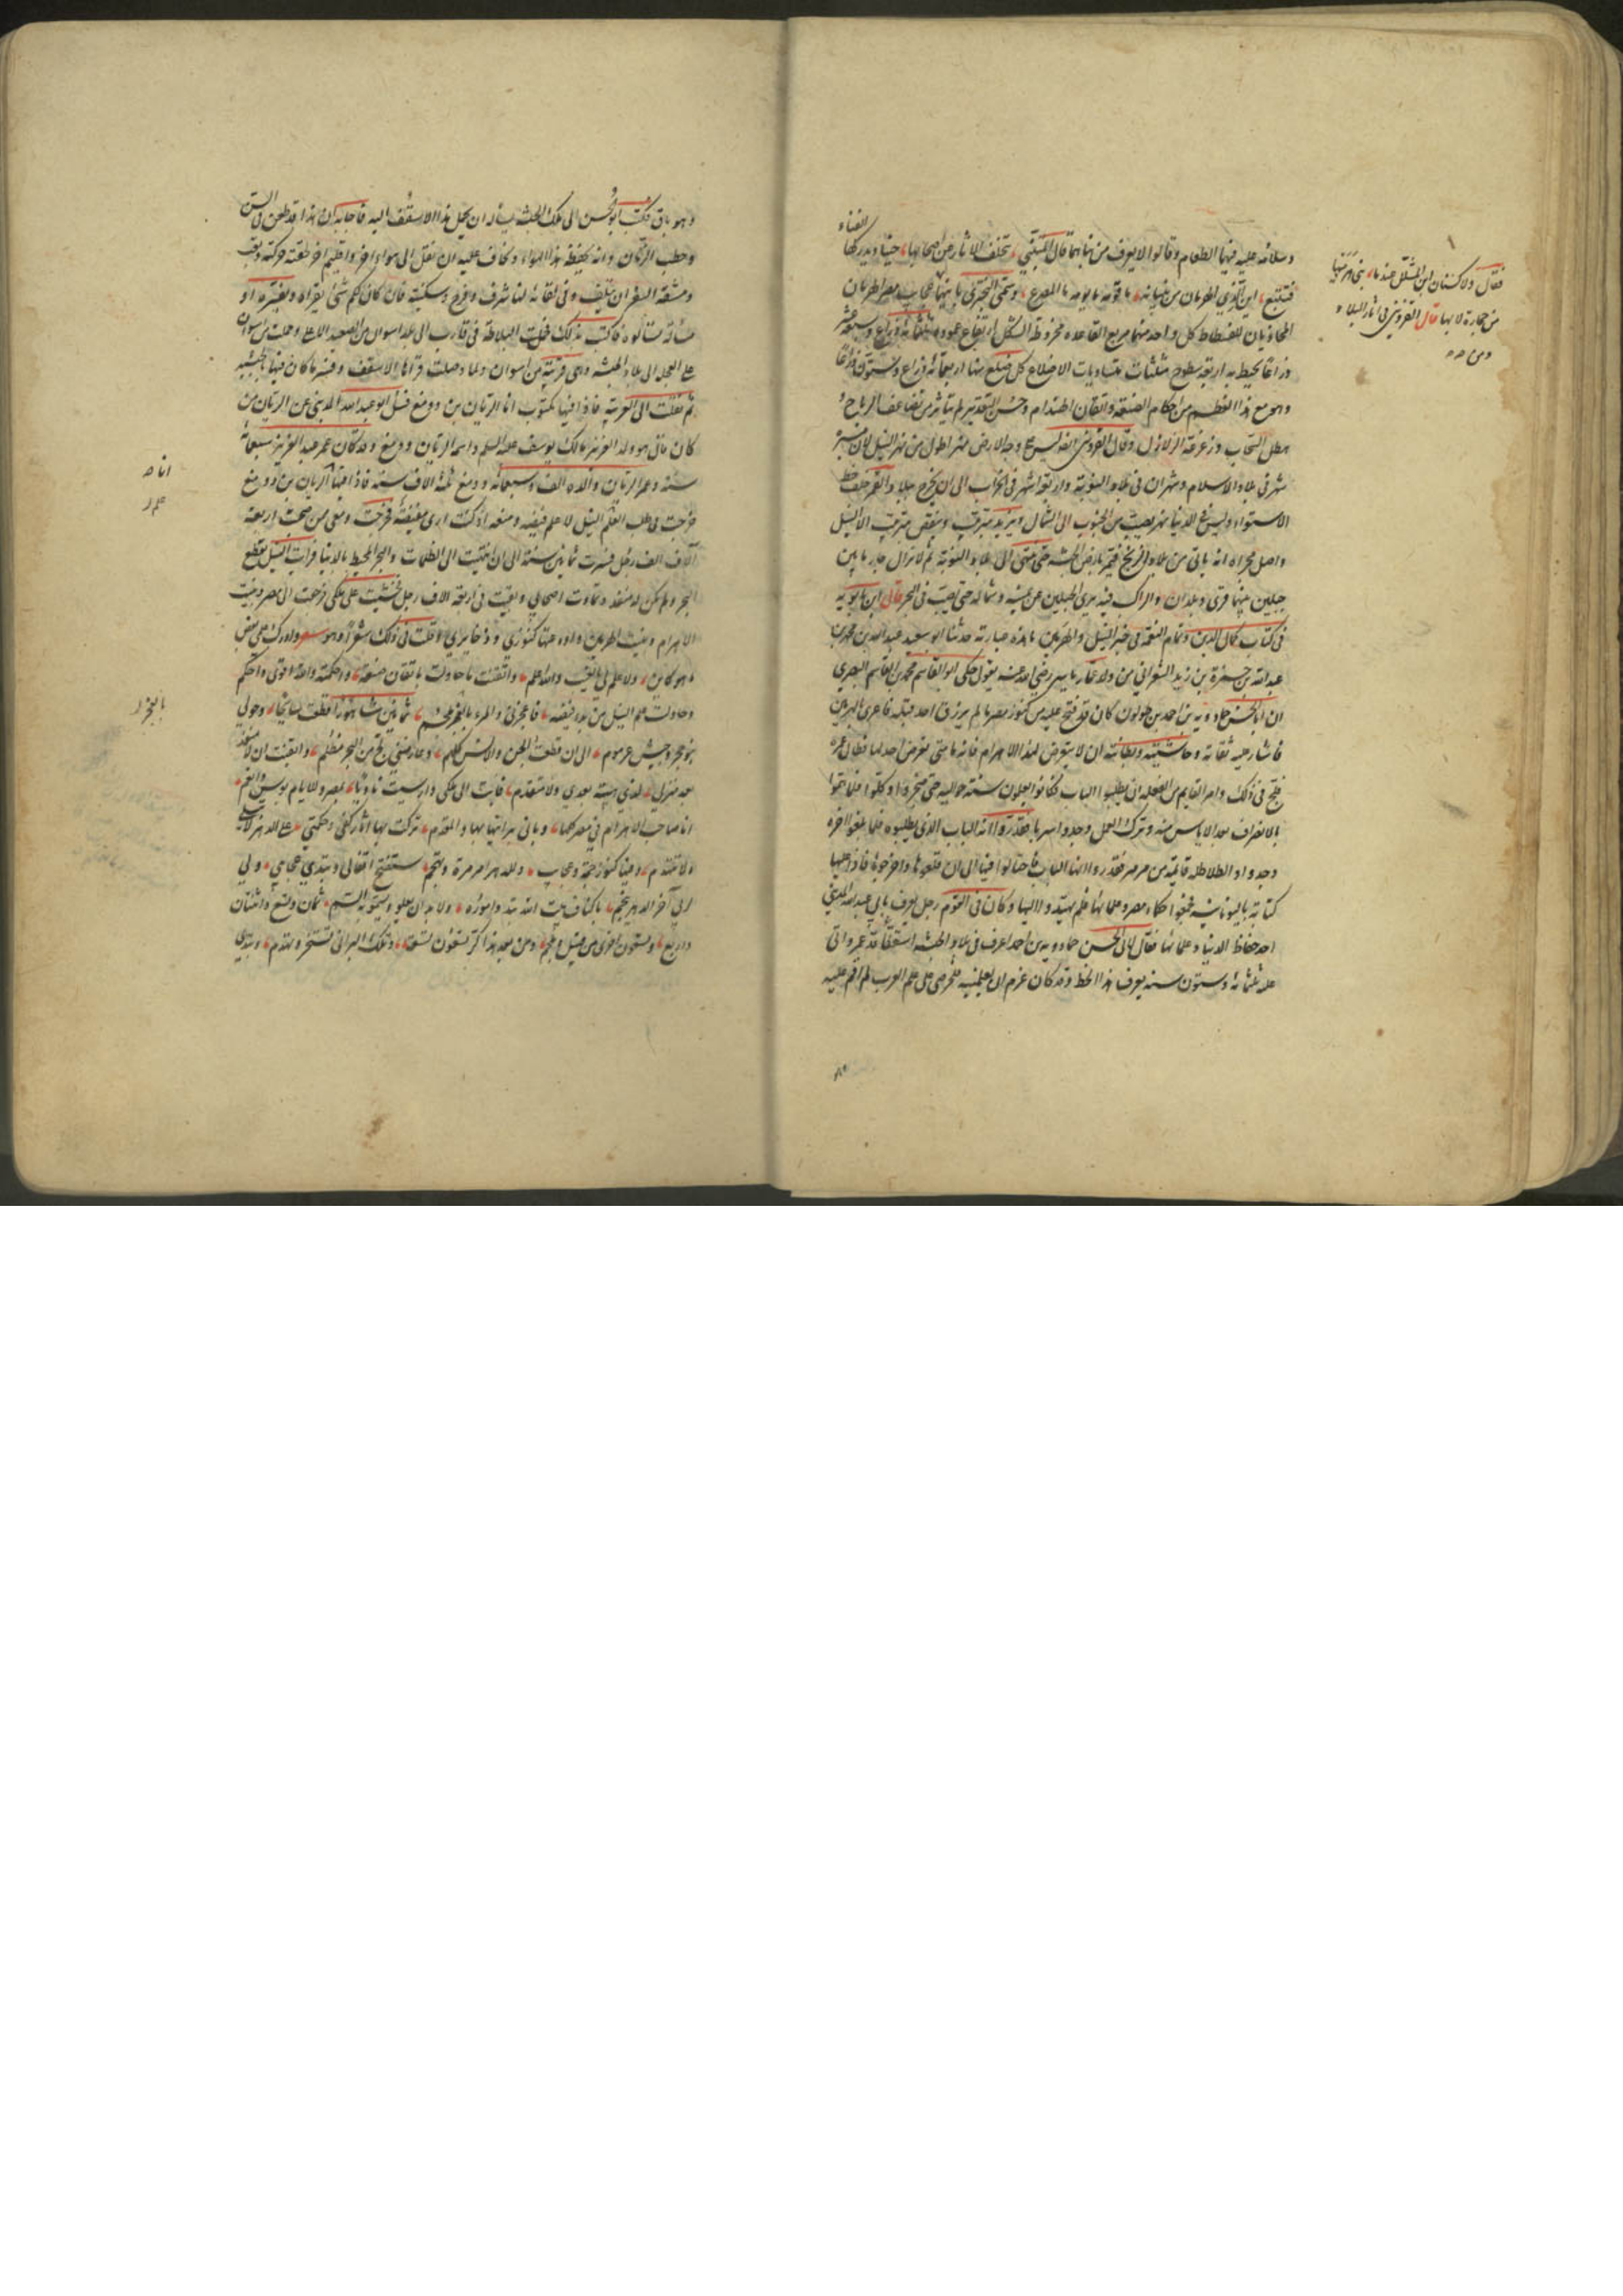 وسلامه عليه فيها الطعام وقالوا لا يعرف من بناهما قال المتنبي تتخلف الآثار عن اصحابها حينا ويدركها الفناء
فتتبع اين الذي الهرمان من بنيانه ما قومه ما يومه ما المصرع
المحاذيان للفسطاط كل واحد منهما مربع القاعدة مخروط الشكل ارتفاع عموده ثلثمائة ذراع وسبعة عشر
ذراعا يحيط به اربعة سطوح مثلثات متساويات الاضلاع كل ضلع منها اربعمائة ذراع وستون ذراعا
وهو مع هذا العظم من احكام الصنعة واتقان الهندام وحسن التقدير لم يتاثر من تضاعف الرياح و
هطل السحاب وزعزعة الزلازل وقال القزويني انه ليس على وجه الارض نهر اطول من نهر النيل لان مسيرة
شهر في بلاد الاسلام وشهران في بلاد النوبة واربعة اشهر في الخراب الى ان يخرج ببلاد القمر خلف خط
الاستواء وليس في الدنيا نهر يصب من الجنوب الى الشمال ويزيد بترتيب وينقص بترتيب الا النيل
واصل مجراه انه ياتي من بلاد الزنج فيمر بارض الحبشة حتى ينتهي الى بلاد النوبة ثم لا يزال جاريا بين
جبلين بينهما قرى وبلدان والراكب فيه يرى الجبلين عن يمينه وشماله حتى يصب في البحر قال ابن بابويه
في كتاب كمال الدين وتمام النعمة في خبر النيل والهرمين ما هذه عبارته حدثنا ابو سعيد عبد الله بن محمد بن
عبد الله بن حمزة بن زيد الشعراني من ولد عمار بن ياسر رضي الله عنه يقول حكى ابو القاسم محمد بن القاسم البصري
ان ابا الحسن حمادويه بن احمد بن طولون كان قد فتح عليه من كنوز مصر ما لم يرزق احد قبله فاغري بالهرمين
فاشار عليه ثقاته وحاشيته وبطانته ان لا يتعرض لهذا الاهرام فانه ما تعرض احد لها فطال عمره
فلج في ذلك وامر الفا من الفعلة ان يطلبوا الباب فكانوا يعملون سنة حواليه حتى ضجروا وكلوا فلما هموا
بالانصراف بعد الاياس منه وترك العمل وجدوا سربا فقدروا انه الباب الذي يطلبونه فلما بلغوا اخره
وجدوا بلاطة قائمة من مرمر فقدروا انها الباب فاحتالوا فيها الى ان قلعوها واخرجوها فاذا عليها
كتابة باليونانية فجمعوا حكماء مصر وعلمائها فلم يهتدوا لها وكان في القوم رجل يعرف بابي عبد الله المديني
احد حفاظ الدنيا وعلمائها فقال لابي الحسن حمادويه بن احمد اعرف في بلاد الحبشة اسقفا قد عمر واتى
عليه ثلثمائة وستون سنة يعرف هذا الخط وقد كان عزم ان يعلمنيه فلحرصي على علم العرب لم اقم عليه
فقال
من حجارة لا بها قال القزويني في اثار البلاد و
وهو باق فكتب ابو الحسن الى ملك الحبشة يساله ان يحمل هذا الاسقف اليه فاجابه ان هذا قد طعن في السن
وحطمه الزمان وانه يحفظه هذا الهواء ويخاف عليه ان نقل الى هواء اخر واقليم اخر ولحقته حركة وتعب
ومشقة السفر ان يتلف وفي بقائه لنا شرف وفرح وسكينة فان كان لكم شيء يقراه ويفسره او
مسالة تسالونه فاكتب بذلك فحملت البلاطة في قارب الى بلد اسوان من الصعيد الاعلى وحملت من اسوان
على العجلة الى بلاد الحبشة وهي قريبة من اسوان ولما وصلت قراها الاسقف وفسر ما كان فيها بالحبشية
ثم نقلت الى العربية فاذا فيها مكتوب انا الريان بن دومغ فسئل ابو عبد الله المديني عن الريان من
كان قال هو والد العزيز مالك يوسف عليه السلم واسمه الريان بن دومغ وقد كان عمر عبد العزيز سبعمائة
سنة وعمر الريان والده الف وسبعمائة ودومغ ثلثة الاف سنة فاذا فيها انا الريان بن دومغ
خرجت في طلب العلم النيل لا علم فيضه ومنبعه اذ كنت ارى مفيضه فخرجت ومعي من صحبت اربعة
آلاف الف رجل فسرت ثمانين سنة الى ان انتهيت الى الظلمات والبحر المحيط بالدنيا فرايت النيل يقطع
البحر ولم يكن له منفذ وتماوت اصحابي وبقيت في اربعة الاف رجل فخشيت على ملكي فرجعت الى مصر وبنيت
الاهرام وبنيت الهرمين واودعتها كنوزي وذخايري وقلت في ذلك شعرا وهو شعر وادرك علمي بعض
ما هو كاين ولا علم لي بالغيب والله اعلم واتقنت ما حاولت باتقان صنعه واحكمته والله اقوى واحكم
وحاولت علم النيل من بدو فيضه فاعجزني والمرء بالعجز ملجم ثمانين شاهورا قطعت مسايحا وحولي
بنو حجر وجيش عرمرم الى ان قطعت الجن والانس كلهم وعارضني لج من البحر مظلم وايقنت ان لا منفذ
بعد منزلي لذي هيبة بعدي ولا متقدم فابت الى ملكي وارسيت ثاويا بمصر وللايام بوس وانعم
انا صاحب الاهرام في مصر كلها وباني برانيها بها والمقدم تركت بها اثار كفي وحكمتي على الدهر لا تبلى
ولا تتهدم وفيها كنوز جمة وعجايب وللدهر امر مرة وتهجم ستفتح اقفالي وتبدي عجايبي ولي
لربي آخر الدهر ينجم باكناف بيت الله تبدو اموره ولا بد ان يعلو ويسمو به السم ثمان وتسع واثنتان
واربع وتسعون اخرى من قتيل وملجم ومن بعد هذا كر تسعون تسعة وتلك البرابي تستخر وتهدم وتبدى
انا ه
علم ر
بالعجز ر